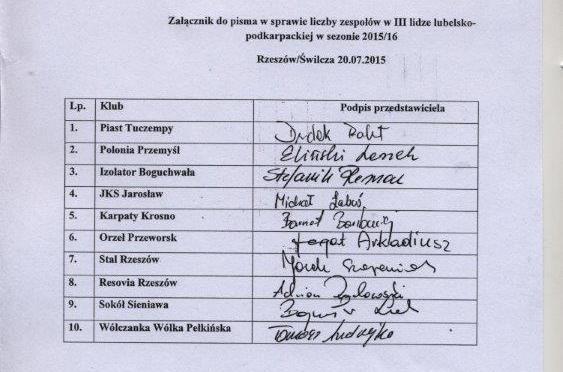 Załącznik do pisma w sprawie liczby zespołów w III lidze lubelsko-
podkarpackiej w sezonie 2015/16
Rzeszów/Świlcza 20.07.2015
Lp. Klub Podpis przedstawiciela
1. Piast Tuczempy
2. Polonia Przemyśl Eliński Leszek
3. Izolator Boguchwała Stefanik
4. JKS Jarosław Michał
5. Karpaty Krosno
6. Orzeł Przeworsk Arkadiusz
7. Stal Rzeszów Marek
8. Resovia Rzeszów Adrian
9. Sokół Sieniawa
10. Wólczanka Wólka Pełkińska Tomasz